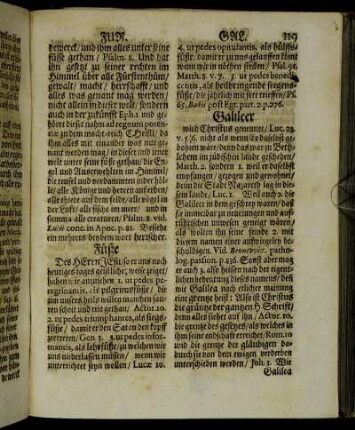 FUR.
GAL. 119
deweck/ und ihm alles unter seine
füsse gethan / Psalm 2. Und hat
ihn gesetzt zu seiner rechten im
Himmel über alle Fürstenthüm/
gewalt/ macht / herrschafft/ und
alles was genant mag werden/
nicht allein in dieser welt / sondern
auch in der zukünfft Eph. 1. und ge-
höret dieser nahm
der macht-reich Christi/ da
ihm alles
nent werden mag/ in dieser und jener
welt unter seine füsse gethan/ die En-
gel und Auserwehlten im Himmel/
die teuffel und verdammten in der höl-
le/ alle Könige und herren auff erden/
alle thiere auff dem felde/ alle vögel in
der Lufft/ alle fische im meer / und in
summa alle creaturen/ Psalm. 8. vid.
Lucii conc. in Apoc. p. 21. Besiehe
ein mehrers bey dem wort herrscher.
Füsse
Des HErrn JEsu/ so er uns noch
heutiges tages geistliche/ weise zeiget/
haben wir anzunehmen 1. ut pedes pe-
regrinantis, als pilgrimsfüsse/ die
um unsers heils willen manchen sau-
ren schrit und trit gethan/ Actor. 10.
2. ut pedes triumphantes, als siegs-
füsse / damit er den Satan den kopff
zertreten/ Gen. 3. 3. ut pedes infor-
mantis, als lehrfüsse/ zu welchen wir
uns niederlassen müssen / wenn wir
unterrichtet seyn wollen / Lucæ 10.
4. ut pedes opitulantis, als hülffs-
füsse damit er zu uns gelauffen kömt
wenn wir in nöthen stecken/ Psal. 91.
March. 8. v. 7. 5. ut pedes benedi-
centis, als heilbringende segens-
füsse/ die jährlich mit fett trieffen/ Ps.
65. post Egr. part. 2. p. 276.
Galileer
wird Christus genennet/ Luc. 23.
v. 5.6. nicht als wenn Er daselbst ge-
bohren wäre/ denn das war zu Beth-
lehem im jüdischen lande geschehen/
March. 2. sondern 1. weil er daselbst
empfangen/ gezogen und gewohnet/
denn die Stadt Nazareth lag in die-
sem lande/ Luc. 1. Weil auch 2. die
Galileer in dem geschrey waren/ daß
sie immerdar zu neuerungen und auff-
rührischen unwesen geneigt wären/
als wolten ihn seine feinde 2. mit
diesem namen einer auffwiegeley be-
schuldigen. Vid. patho-
log. pation. p. 236. Sonst aber mag
er auch 3. also heissen nach der eigent-
lichen bedeutung dieses namens/ deß
wie Galilea nach etlicher meinung
eine grentze heist: Also ist Christus
die grentze der gantzen H. Schrifft/
denn alles siehet auf ihn / Actor. 10.
die grentze des gesetzes/ als welches in
ihm seine endschafft erreichet/ Rom. 10
und die grentze der gläubigen da-
durch sie von dem ewigen verderben
unterschieden werden / Joh. 3. Wie
Galilea